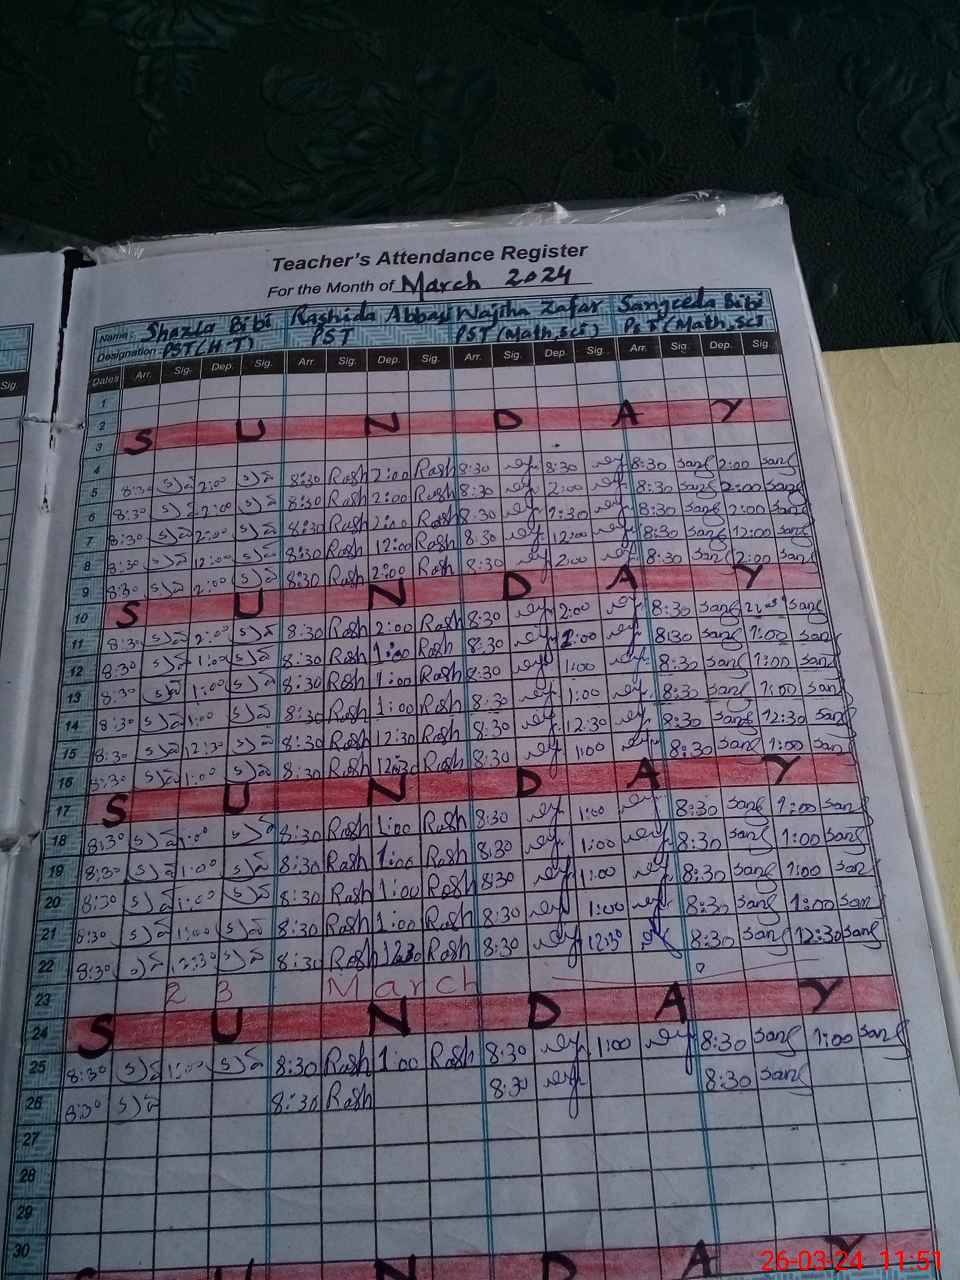 Teacher's Attendance Register
For the Month of March 2024
Name: Shazia Bibi Rashida Abbasi Wajiha Zafar Sangeeda Bibi
Designation: PST(H.T) PST PST(Math,Sci) PST(Math,Sci
Dates Arr. Sig. Dep. Sig. Arr. Sig. Dep. Sig. Arr. Sig. Dep. Sig. Arr. Sig. Dep. Sig.
Sig.
1
2
3 S U N D A Y
4 8:30 2:00 8:30 Rash 2:00 Rash 8:30 8:30 8:30 sang 2:00 sang
5 8:30 2:00 8:30 Rash 2:00 Rash 8:30 2:00 8:30 sang 2:00 sang
6 8:30 2:00 8:30 Rash 2:00 Rash 8:30 8:30 sang 2:00 sang
7 8:30 12:00 8:30 Rash 12:00 Rash 8:30 12:00 8:30 sang 12:00 sang
8 8:30 2:00 8:30 Rash 2:00 Rash 8:30 2:00 8:30 sang 2:00 sang
9
10 S U N D A Y
11 8:30 2:00 8:30 Rash 2:00 Rash 8:30 2:00 8:30 sang sang
12 8:30 1:00 8:30 Rash 1:00 Rash 8:30 2:00 8:30 sang 1:00 sang
13 8:30 1:00 8:30 Rash 1:00 Rash 8:30 1:00 8:30 sang 1:00 sang
14 8:30 1:00 8:30 Rash 1:00 Rash 8:30 1:00 8:30 sang 1:00 sang
15 8:30 12:30 8:30 Rash 12:30 Rash 8:30 12:30 8:30 sang 12:30 sang
16 8:30 1:00 8:30 Rash Rash 8:30 1:00 8:30 sang 1:00 sang
17 S U N D A Y
18 8:30 1:00 8:30 Rash 1:00 Rash 8:30 1:00 8:30 sang 1:00 sang
19 8:30 1:00 8:30 Rash 1:00 Rash 8:30 1:00 8:30 sang 1:00 sang
20 8:30 1:00 8:30 Rash 1:00 Rash 8:30 1:00 8:30 sang 1:00 sang
21 8:30 1:00 8:30 Rash 1:00 Rash 8:30 1:00 8:30 sang 1:00 sang
22 8:30 12:30 8:30 Rash 12:30 Rash 8:30 12:30 8:30 sang 12:30 sang
23 23 March
24 S U N D A Y
25 8:30 1:00 8:30 Rash 1:00 Rash 8:30 1:00 8:30 sang 1:00 sang
26 8:30 8:30 Rash 8:30 8:30 sang
27
28
29
30
S U N D A Y
26-03-24 11:51